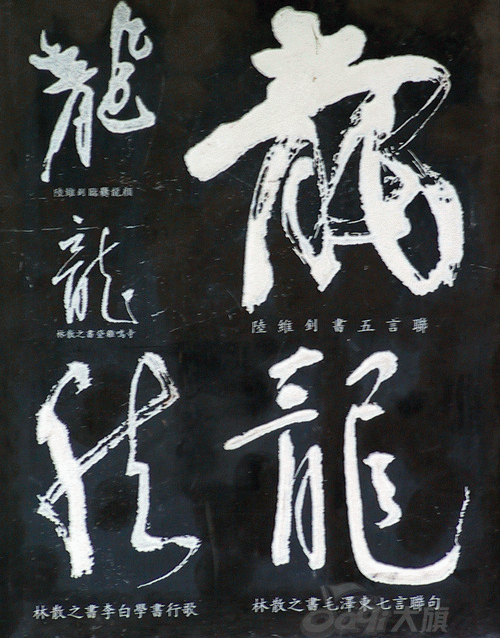 龍
陸維釗臨爨龍顏
龍
陸維釗書五言聯
龍
林散之書登雞鳴寺
龍
林散之書李白草書歌行
龍
林散之書毛澤東七言聯句
大旗